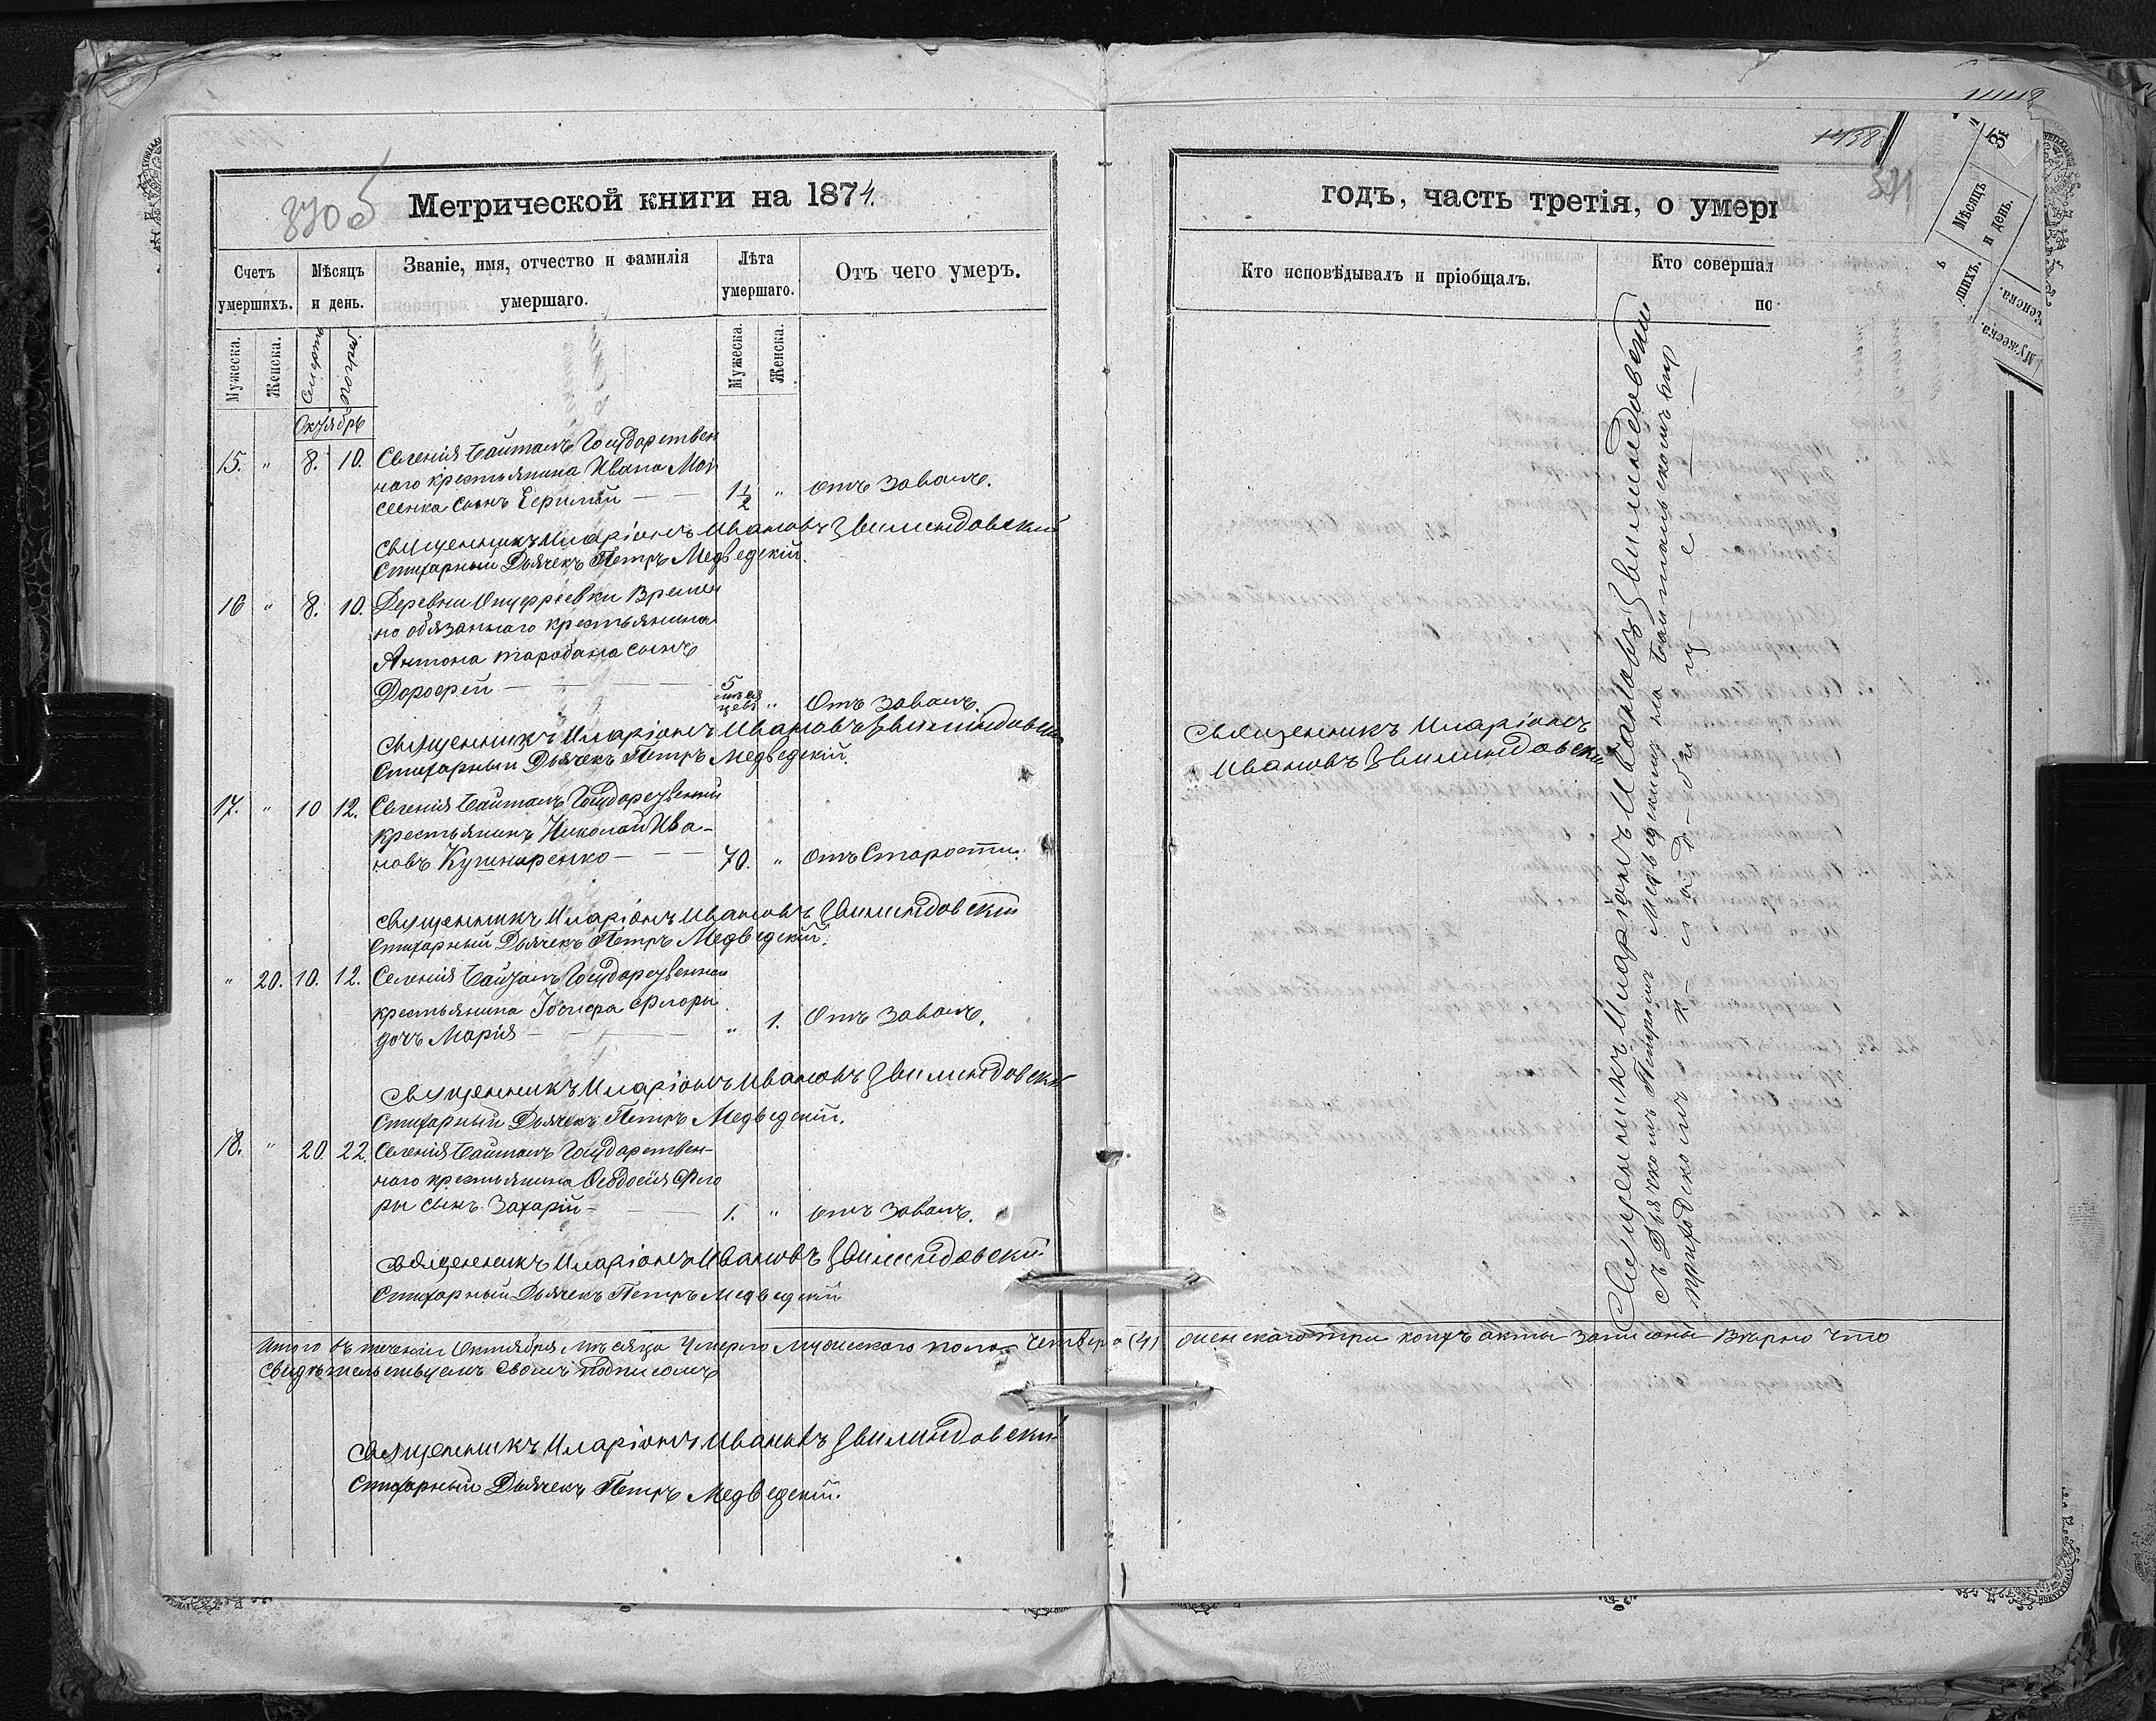 370 об
Метрической книги на 1874.
Счетъ умершихъ.
Мѣсяцъ и день.
Званіе, имя, отчество и фамилія умершаго.
Лѣта умершаго.
Отъ чего умеръ.
Мужеска.
Женска.
Смерти
Мужеска.
Женска.
Октябрь
15. " 8. 10. Селенія Баштанъ Государствен
наго крестьянина Ивана Мои
сеенка сынъ Ефимій — — 1 1/2 " отъ завал.
Священникъ Иларіонъ Ивановъ Звилиндовский
Стихарный Дьячекъ Петръ Медведскій.
16 " 8. 10. Деревни Онуфріевки Времен
но обязаннаго крестьянина
Антона Тарабана сынъ
Дорофей — — — 5 мѣся цевъ " Отъ завал.
Священникъ Иларіонъ Ивановъ Звилиндовский
Стихарный Дьячекъ Петръ Медведскій.
17. " 10 12. Селенія Баштанъ Государственный
крестьянинъ Николай Ива-
новъ Кушниренко — — — 70. " отъ Старости.
Священникъ Иларіонъ Ивановъ Звилиндовский
Стихарный Дьячекъ Петръ Медведскій.
" 20. 10. 12. Селенія Баштанъ Государственнаго
крестьянина Іосифа Флоры
дочь Марія — — — " 1. Отъ завал.
Священникъ Иларіонъ Ивановъ Звилиндовский
Стихарный Дьячекъ Петръ Медведскій.
18. " 20. 22. Селенія Баштанъ Государствен-
наго крестьянина Ѳеодосія Фло
ры сынъ Захарій — — 1. " отъ завал.
Священникъ Иларіонъ Ивановъ Звилиндовский
Стихарный Дьячекъ Петръ Медведскій
Итого въ теченіи Октября мѣсяца умерло мужескаго пола четверо (4) женскаго три коихъ акты записаны Вѣрно что
свидѣтельствуемъ своимъ подписомъ
Священникъ Иларіонъ Ивановъ Звилиндовский
Стихарный Дьячекъ Петръ Медведскій.
1438
371
годъ, часть третія, о умерш
Кто исповѣдывалъ и пріобщалъ.
Кто совершал
по
Мѣсяцъ и день.
шихъ.
Женска.
Мужеска.
Священникъ Иларіонъ
Ивановъ Звилиндовский
Священникъ Иларіонъ Ивановъ Звилиндовский
съ Дьячкомъ Петромъ Медведскимъ на Баштанскомъ при
приходскомъ кладбищѣ